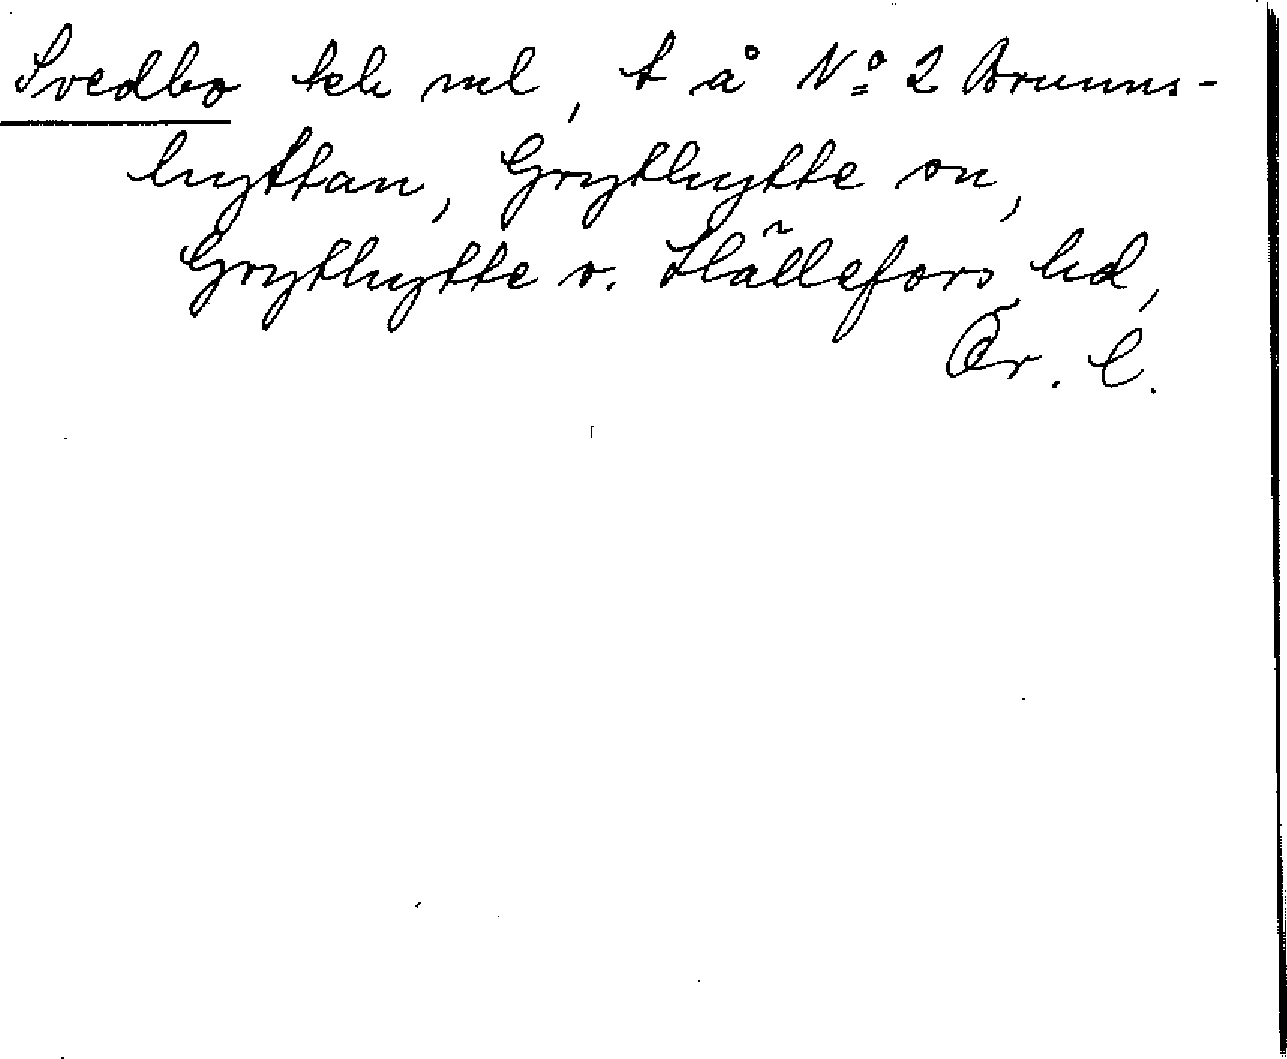 Svedbo teh ml, t å No 2 Brunns-
hyttan, Grythytte sn,
Grythytte o. Hällefors hd,
Ör. l.